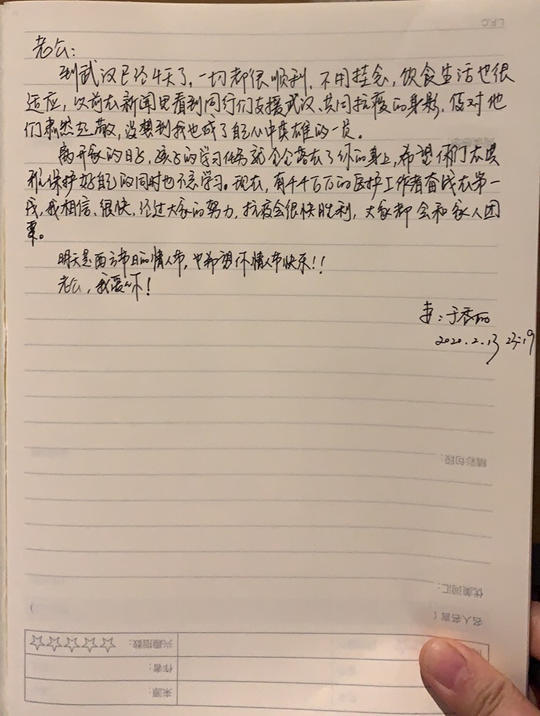 L.F.C
老公：
到武汉已经4天了，一切都很顺利，不用挂念，饮食生活也很
适应，以前在新闻里看到同行们支援武汉，共同抗疫的身影，倍对他
们肃然起敬，没想到我也成了自己心中英雄的一员。
离开家的日子，孩子的学习任务就全落在了你的身上，希望你们在照
顾、保护好自己的同时也不忘学习。现在，有千千万万的医护工作者奋战在第一
线，我相信、很快，经过大家的努力，抗疫会很快胜利，大家都会和家人团
聚。
明天是西方节日的情人节，也希望你情人节快乐！！
老公，我爱你！
妻：于香丽
2020.2.13 23:19
精彩句段：
优美词汇：
名人名言（
兴趣指数：☆☆☆☆☆
作者：
来源：